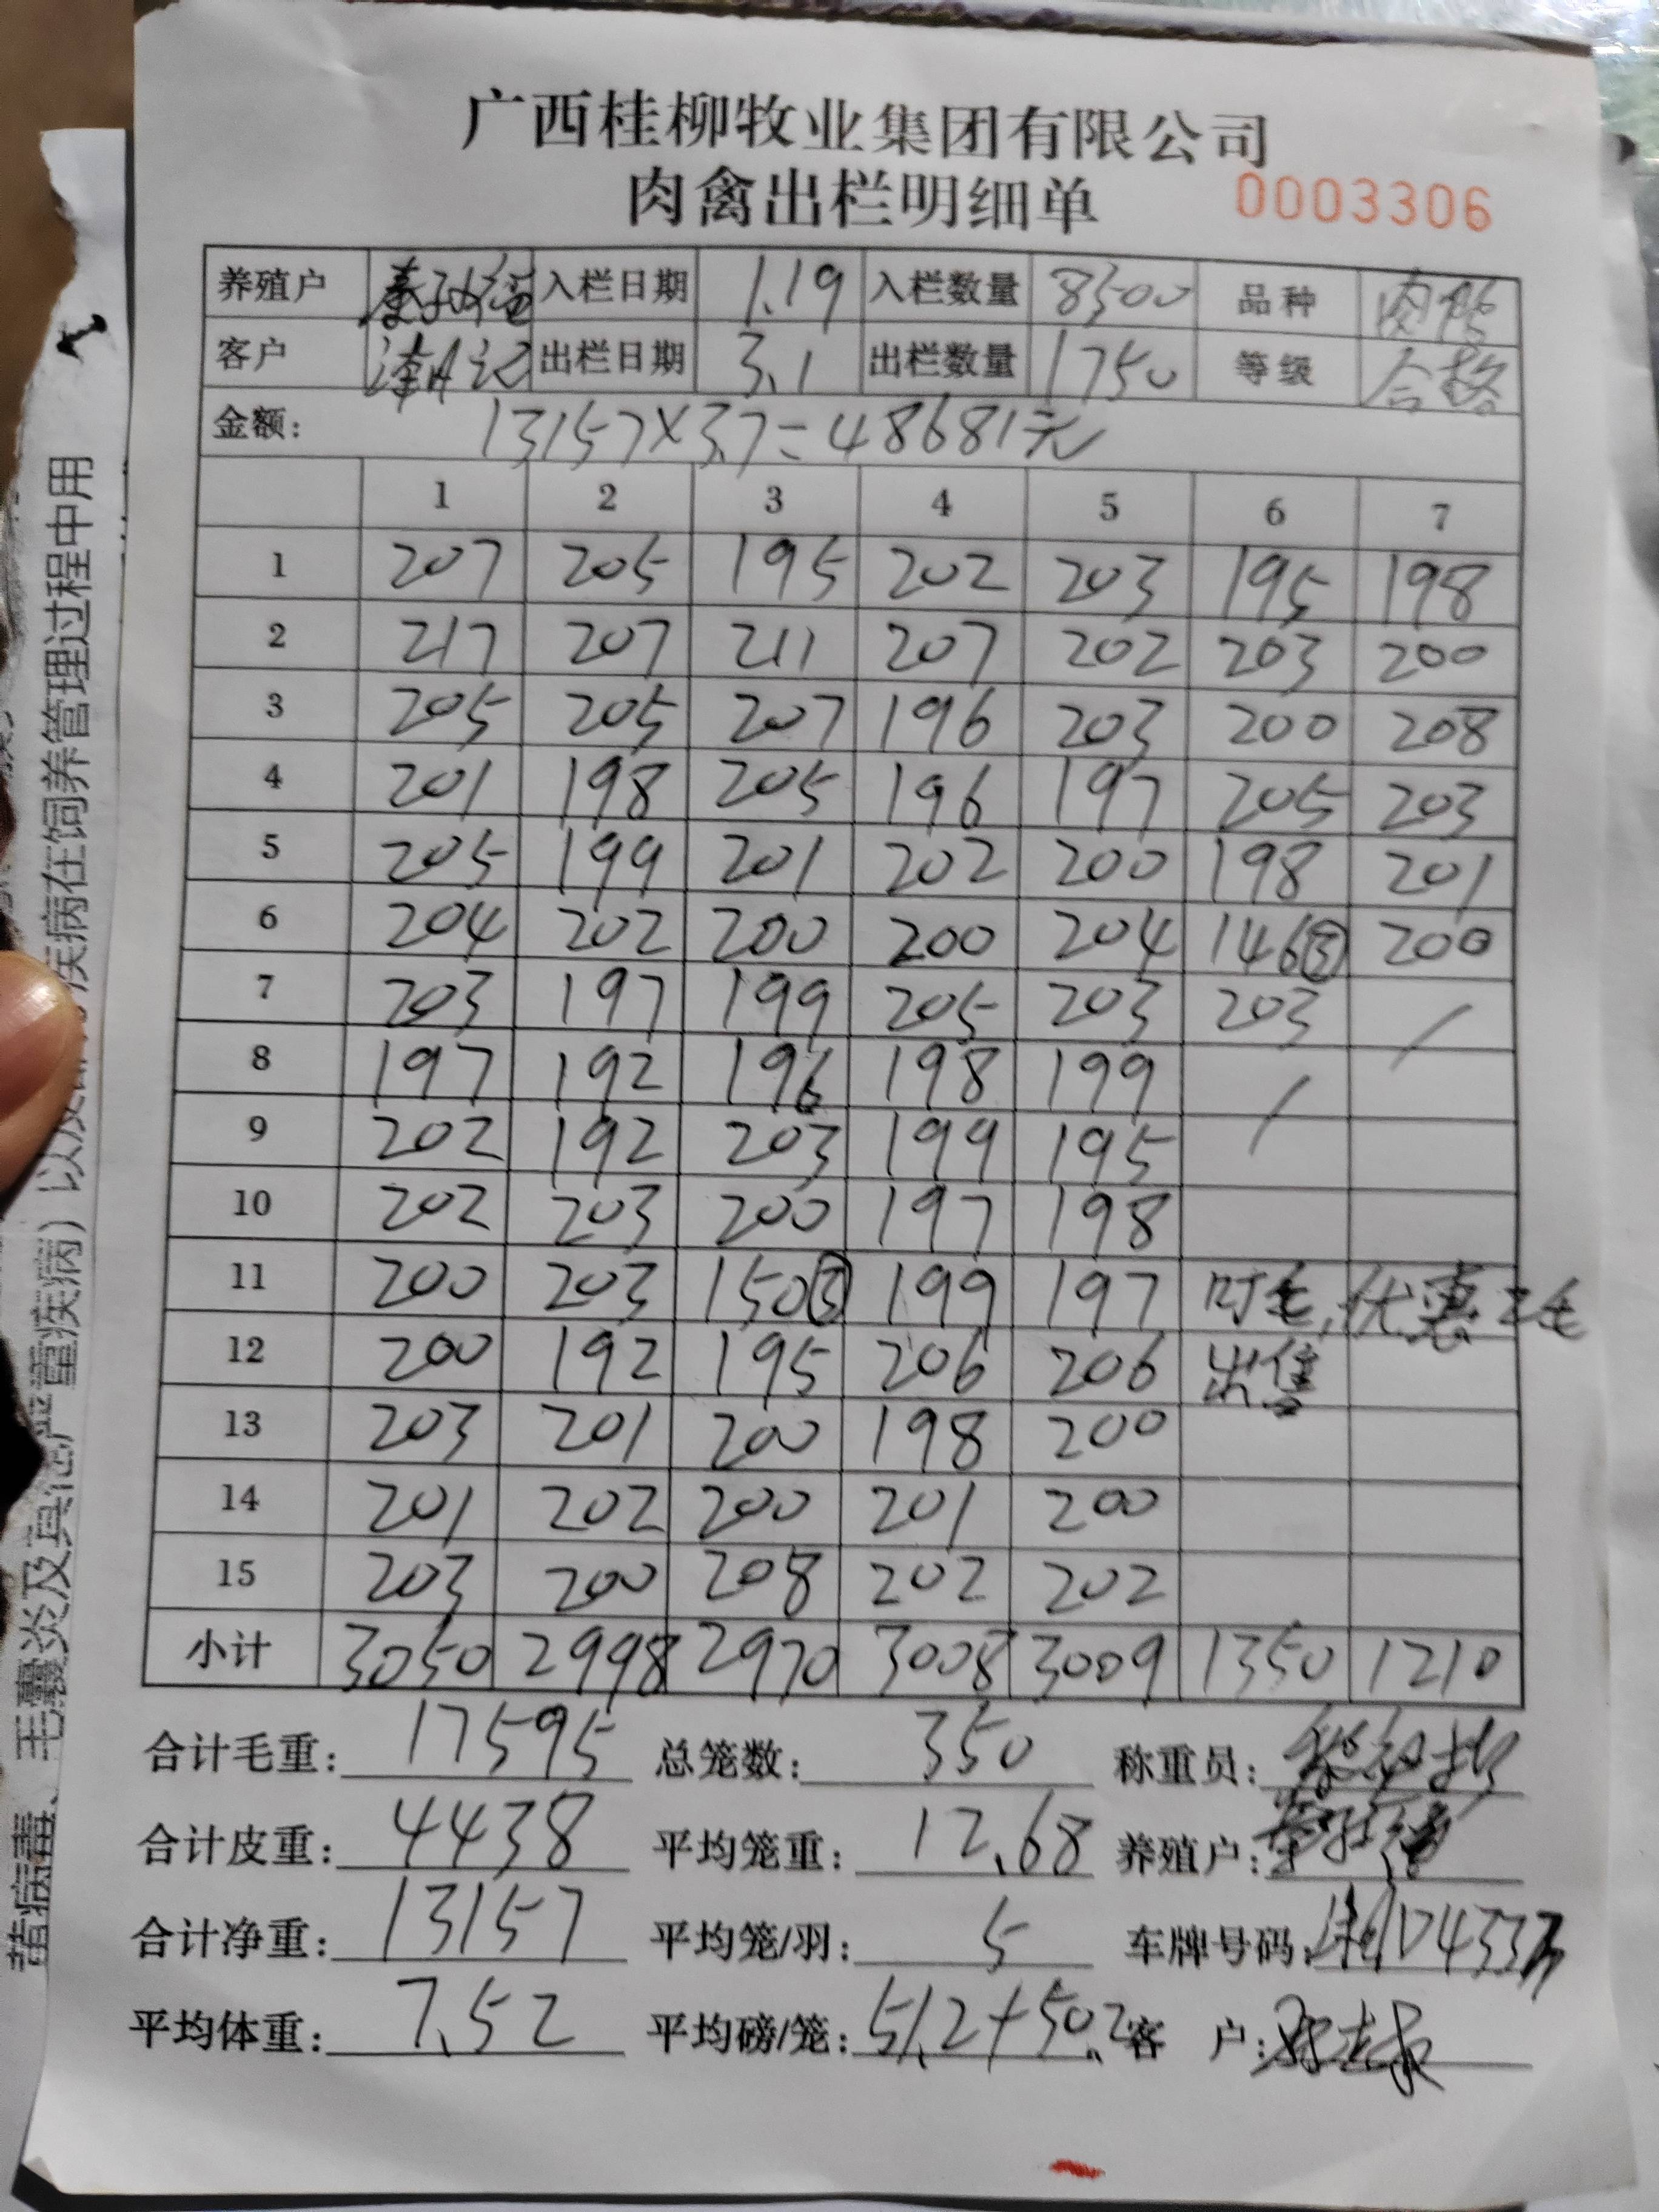 广西桂柳牧业集团有限公司
肉禽出栏明细单 0003306
养殖户 入栏日期 1.19 入栏数量 8500 品种 肉鸭
客户 出栏日期 3.1 出栏数量 1750 等级 合格
金额: 13157×3.7=48681元
1 2 3 4 5 6 7
1 207 205 195 202 203 195 198
2 217 207 211 207 202 203 200
3 205 205 207 196 203 200 208
4 201 198 205 196 197 205 203
5 205 199 201 202 200 198 201
6 204 202 200 200 204 146③ 200
7 203 197 199 205 203 203 /
8 197 192 196 198 199 /
9 202 192 203 199 195
10 202 203 200 197 198
11 200 203 150③ 199 197 吋毛,优惠2毛
12 200 192 195 206 206 出售
13 203 201 200 198 200
14 201 202 200 201 200
15 203 200 208 202 202
小计 3050 2998 2970 3008 3009 1350 1210
合计毛重: 17595 总笼数: 350 称重员:
合计皮重: 4438 平均笼重: 12.68 养殖户:
合计净重: 13157 平均笼/羽: 5 车牌号码:
平均体重: 7.52 平均磅/笼: 51.2+50.2 客 户:
毛囊炎及其他严重疾病)以及 疾病在饲养管理过程中用